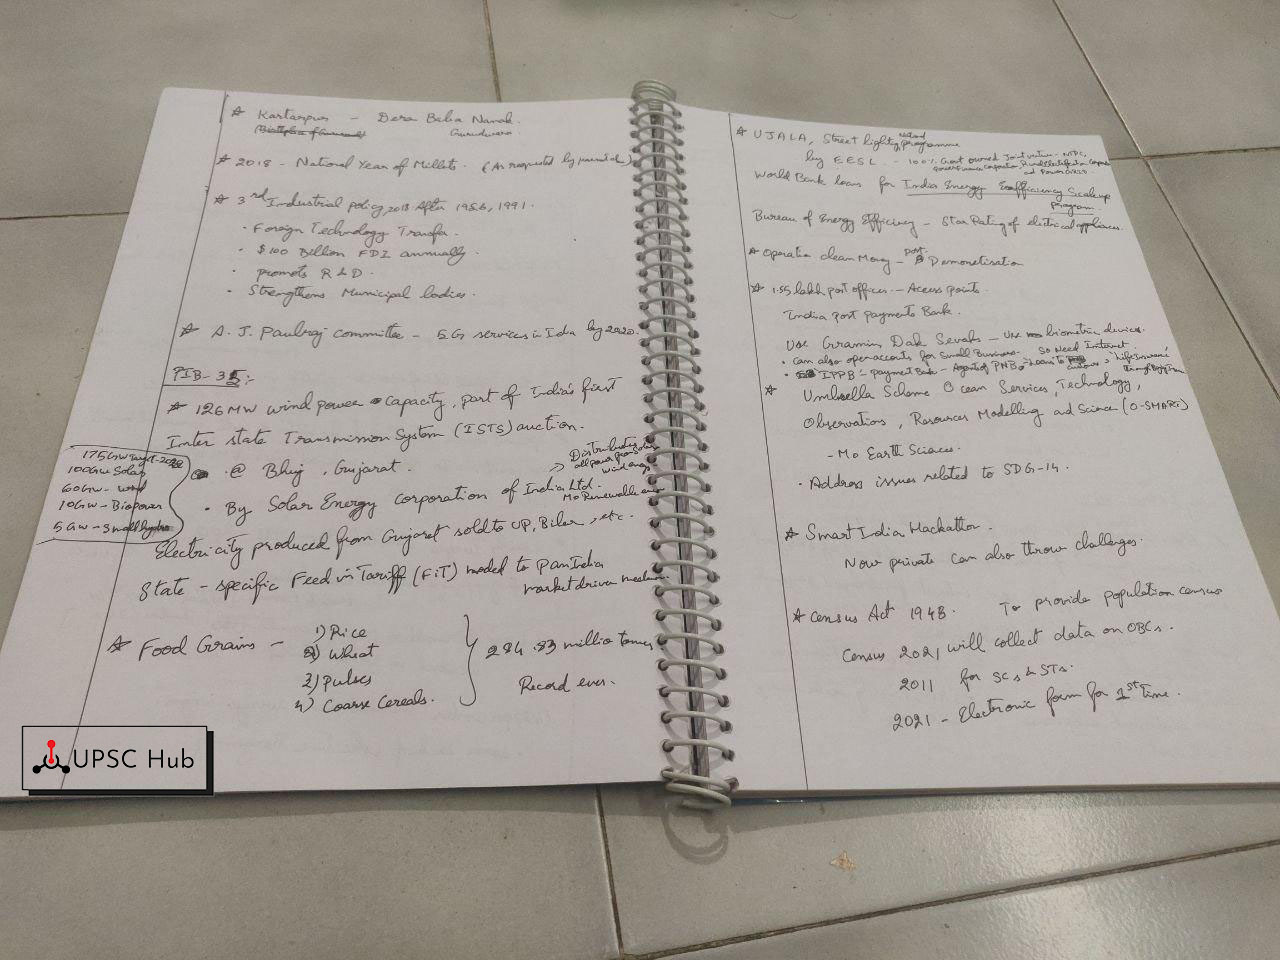 ☆ Kartarpur - Dera Baba Nanak.
Gurudwara.
☆ 2018 - National Year of Millets. (As requested by
☆ 3rd Industrial policy, 2018 After 1956, 1991.
· Foreign Technology Transfer.
· $100 Billion FDI annually.
· promots R&D.
· Strengthens Municipal bodies.
☆ A. J. Paulraj committee - 5G services in India by 2020.
PIB-3
☆ 126MW wind power Capacity, part of India's first
Inter state Transmission System (ISTS) auction.
@ Bhuj, Gujarat.
· By Solar Energy corporation of India Ltd.
=> Distributes all power from solar
wind energy
Mo Renewable
175GW Target-2022
100GW Solar
60GW - wind
10GW - Biopower
5GW - Small hydro
Electricity produced from Gujarat sold to UP, Bihar, etc.
State - specific Feed in Tariff (FiT) model to Pan India
market driven
☆ Food Grains -
1) Rice
2) Wheat
3) Pulses
4) Coarse Cereals.
284.83 million tonnes.
Record ever.
UPSC Hub
☆ UJALA, Street lighting National programme
by EESL - 100% Govt owned Joint venture - NTPC,
power finance corporation, Rural Electrification
and POWERGRID.
World Bank loans for India Energy Efficiency Scaleup
program
Bureau of Energy Efficiency - Star Rating of electrical appliances.
☆ Operation clean Money - post Demonetisation
☆ 1.55 lakh post offices - Access points.
India post payments Bank.
Use Gramin Dak Sevaks - Use biometric devices.
· Can also open accounts for Small Business. So Need Internet.
· IPPB - payment Bank - Agents of PNB, - loans to 'life Insurance'
☆ Umbrella Scheme Ocean Services, Technology,
Observations, Resources Modelling and Science (O-SMART)
- Mo Earth Sciences.
· Address issues related to SDG-14.
☆ Smart India Hackathon.
Now private can also throw challenges.
☆ Census Act 1948. To provide population census
Census 2021 will collect data on OBCs.
2011 for SCs & STs.
2021 - Electronic form for 1st time.